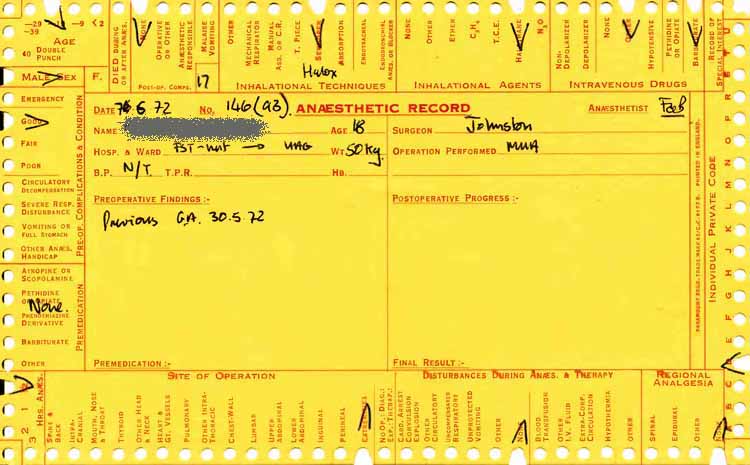 -29
-39
-9
< 2
40
AGE
DOUBLE
PUNCH
MALE SEX
F.
DIED DURING
OR AFTER ANÆS.
NONE
OPERATIVE
OR OTHER
ANÆSTHETIC
RESPONSIBLE
MALAISE
VOMITING
OTHER
POST-OP. COMPS.
17
MECHANICAL
RESPIRATOR
MANUAL
ASS. OR C.R.
T. PIECE
ABSORPTION
ENDOTRACHEAL
ENDOBRONCHIAL
OR BLOCKER
Halox
INHALATIONAL TECHNIQUES
NONE
OTHER
ETHER
C₃H₆
T.C.E.
HALOTHANE
N₂O
INHALATIONAL AGENTS
NON-
DEPOLARIZER
DEPOLARIZER
NONE
OTHER
HYPOTENSIVE
PETHIDINE
OR OPIATE
BARBITURATE
INTRAVENOUS DRUGS
RECORD OF
SPECIAL INTEREST
EMERGENCY
GOOD
FAIR
POOR
CIRCULATORY
DECOMPENSATION
SEVERE RESP.
DISTURBANCE
VOMITING OR
FULL STOMACH
OTHER ANÆS.
HANDICAP
PRE-OP. COMPLICATIONS & CONDITION
ATROPINE OR
SCOPOLAMINE
PETHIDINE
OR OPIATE
None.
PHENOTHIAZINE
DERIVATIVE
BARBITURATE
OTHER
PREMEDICATION
DATE 7 6 72 No. 146 (a3). ANÆSTHETIC RECORD ANÆSTHETIST
NAME AGE 18 SURGEON Johnston
HOSP. & WARD WT 50 kg. OPERATION PERFORMED MUA
B.P. N/T T.P.R. HB.
PREOPERATIVE FINDINGS :-
Previous G.A. 30.5.72
POSTOPERATIVE PROGRESS :-
PREMEDICATION :-
FINAL RESULT :-
INDIVIDUAL PRIVATE CODE
PRINTED IN ENGLAND.
3 2 1
HRS. ANÆS.
SITE OF OPERATION
SPINE &
BACK
INTRA-
CRANIAL
MOUTH, NOSE
& THROAT
THYROID
OTHER HEAD
& NECK
HEART &
GT. VESSELS
PULMONARY
OTHER INTRA-
THORACIC
CHEST-WALL
LUMBAR
UPPER
ABDOMINAL
LOWER
ABDOMINAL
INGUINAL
PERINEAL
EXTREMITIES
NO OP. DIAG.:
EXP.: THERAP.:
DISTURBANCES DURING ANÆS. & THERAPY
CARD. ARREST
CONVULSION
EXPLOSION
OTHER
CIRCULATORY
UNCOMPENSATED
RESPIRATORY
UNPROTECTED
VOMITING
OTHER
BLOOD
TRANSFUSION
OTHER
I.V. FLUID
EXTRA-CORP.
CIRCULATION
HYPOTHERMIA
OTHER
REGIONAL
ANALGESIA
SPINAL
EPIDURAL
OTHER